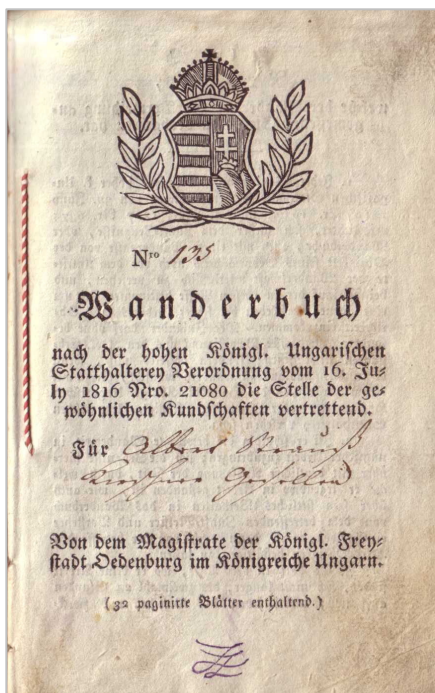 Nro 135
Wanderbuch
nach der hohen Königl. Ungarischen
Statthalterey Verordnung vom 16. Ju-
ly 1816 Nro. 21080 die Stelle der ge-
wöhnlichen Kundschaften vertrettend.
Für Albert Strauss
Gesellen
Von dem Magistrate der Königl. Frey-
stadt Oedenburg im Königreiche Ungarn.
(32 paginirte Blätter enthaltend.)